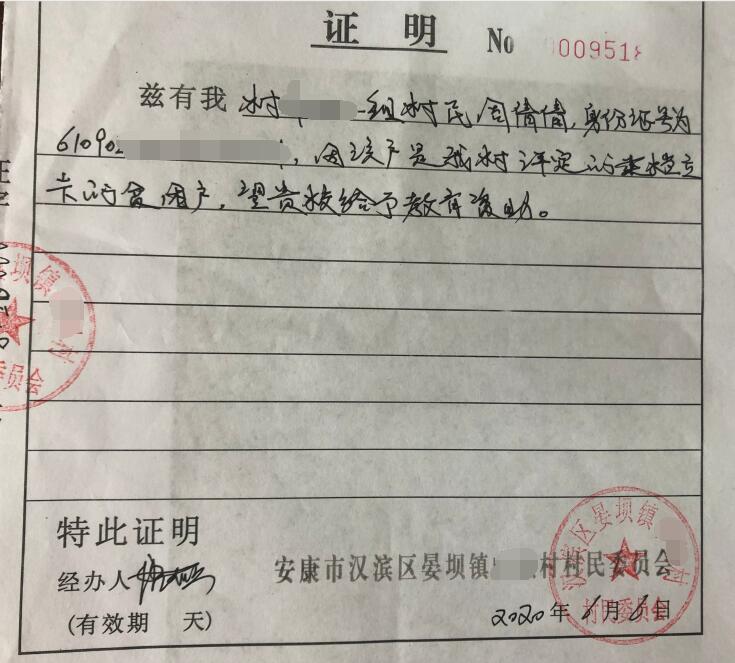 证 明 No 009518
兹有我 村 组村民周倩倩,身份证号为
61090 ,因该户是我村评定的建档立
卡的贫困户,望贵校给予教育资助。
特此证明
经办人
安康市汉滨区晏坝镇 村村民委员会
2020年 月 日
(有效期 天)
汉滨区晏坝镇 村
村民委员会
坝镇 村
委员会